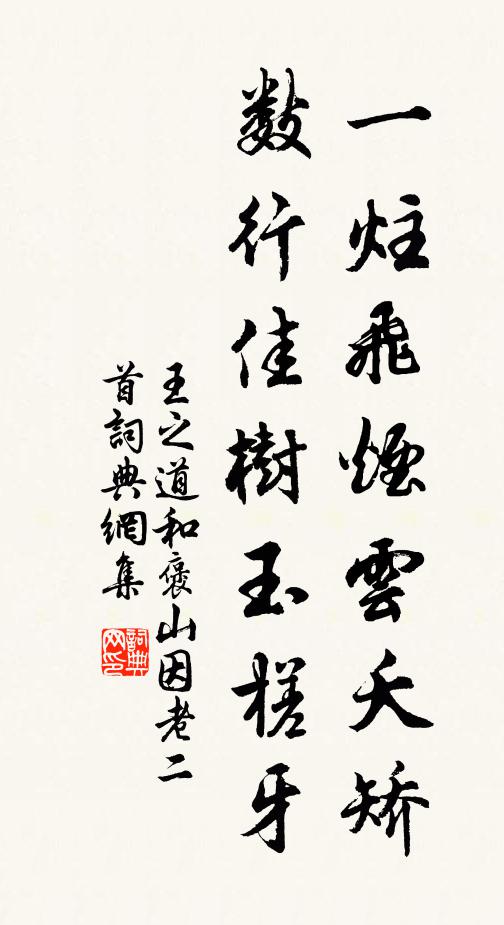 一炷飛煙雲夭矯
數行佳樹玉槎牙
王之道和褒山因老二
首詞典網集
詞典
网印